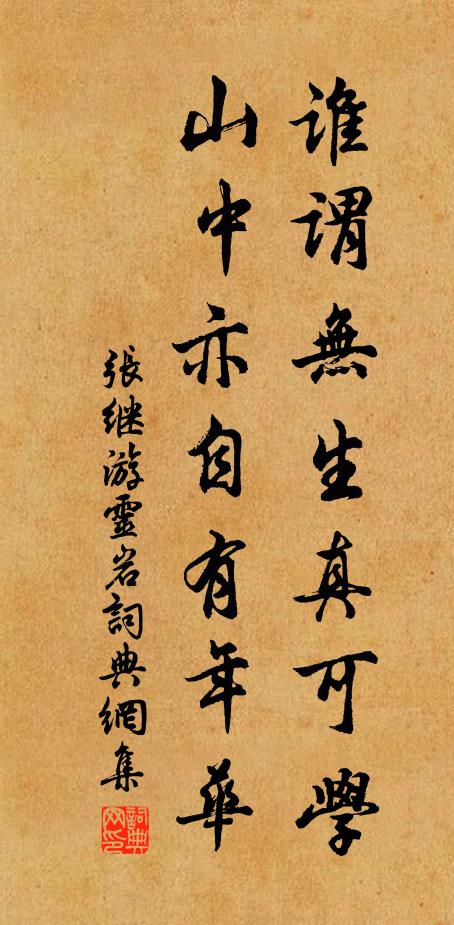 誰謂無生真可學
山中亦自有年華
張继游靈岩詞典網集
詞典网印